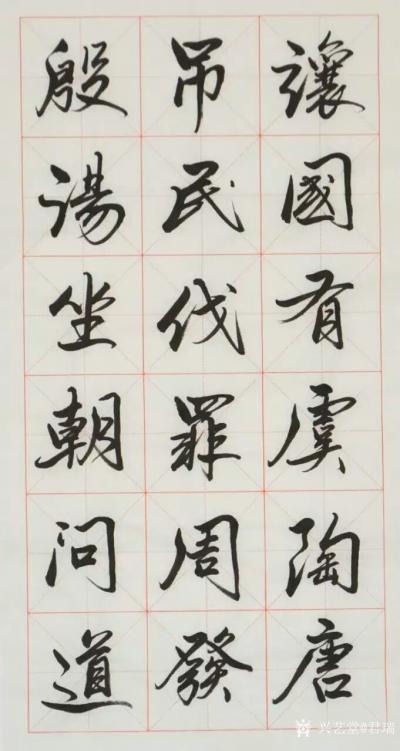 讓國有虞陶唐
吊民伐罪周發
殷湯坐朝問道
兴艺堂@君瑞